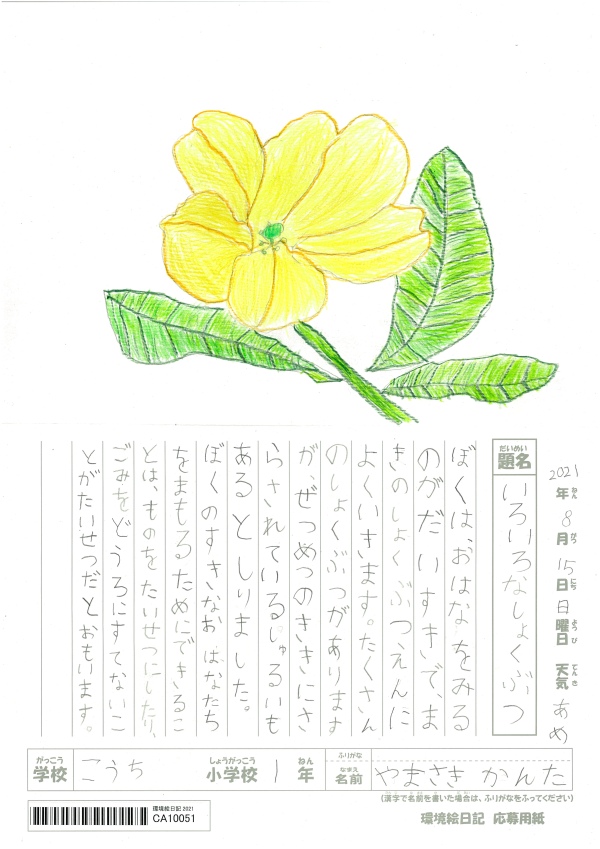 2021年8月15日日曜日 天気あめ
ねん がつ にち ようび てんき
だいめい
題名 いろいろなしょくぶつ
ぼくは、おはなをみる
のがだいすきで、ま
きのしょくぶつえんに
よくいきます。たくさん
のしょくぶつがあります
が、ぜつめつのききにさ
らされているしゅるいも
あるとしりました。
ぼくのすきなおはなたち
をまもるためにできるこ
とは、ものをたいせつにしたり、
ごみをどうろにすてないこ
とがたいせつだとおもいます。
がっこう しょうがっこう ねん ふりがな なまえ
学校 こうち 小学校 1年 名前 やまさき かんた
(漢字で名前を書いた場合は、ふりがなをふってください)
環境絵日記 2021
CA10051
環境絵日記 応募用紙